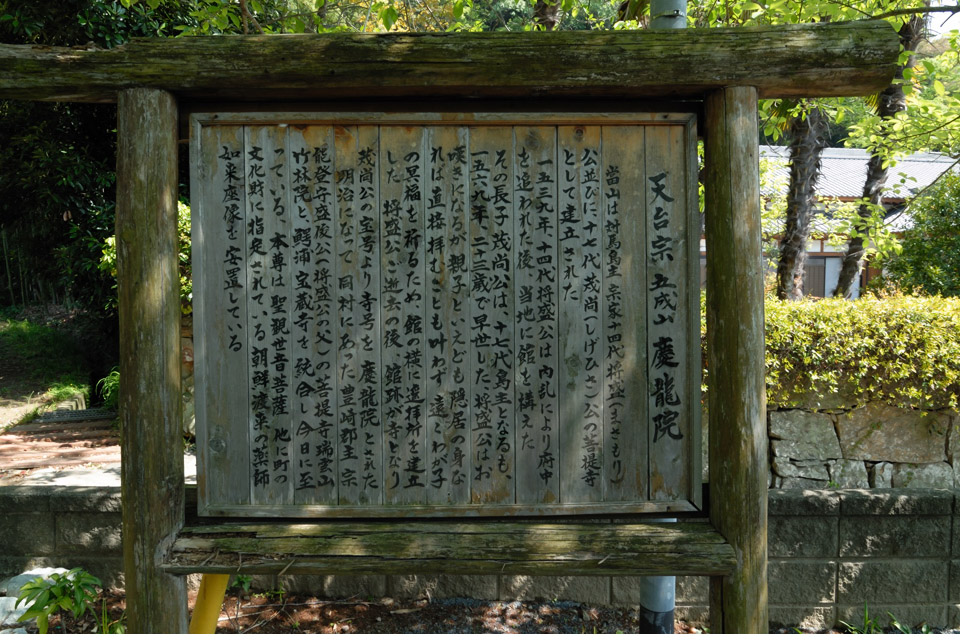 天台宗 五成山 慶龍院
当山は対馬島主 宗家十四代将盛(まさもり)
公並びに、十七代茂尚(しげひさ)公の菩提寺
として建立された
一五三九年、十四代将盛公は内乱により府中
を追われた後、当地に館を構えた
その長子 茂尚公は、十七代島主となるも、
一五六九年、二十三歳で早世した、将盛公はお
嘆きになるが親子といえども 隠居の身な
れば直接拝むことも叶わず 遠くわが子
の冥福を祈るため、館の横に遥拝所を建立
した 将盛公、ご逝去の後、館跡が寺となり
茂尚公の宝号より寺号を 慶龍院とされた
明治になって 同村にあった豊崎郡主 宗
能登守盛俊公(将盛公の父)の菩提寺瑞雲山
竹林院と、鰐浦 宝蔵寺を 統合し今日に至
っている、本尊は聖観世音菩薩 他に町の
文化財に指定されている 朝鮮渡来の薬師
如来座像を安置している